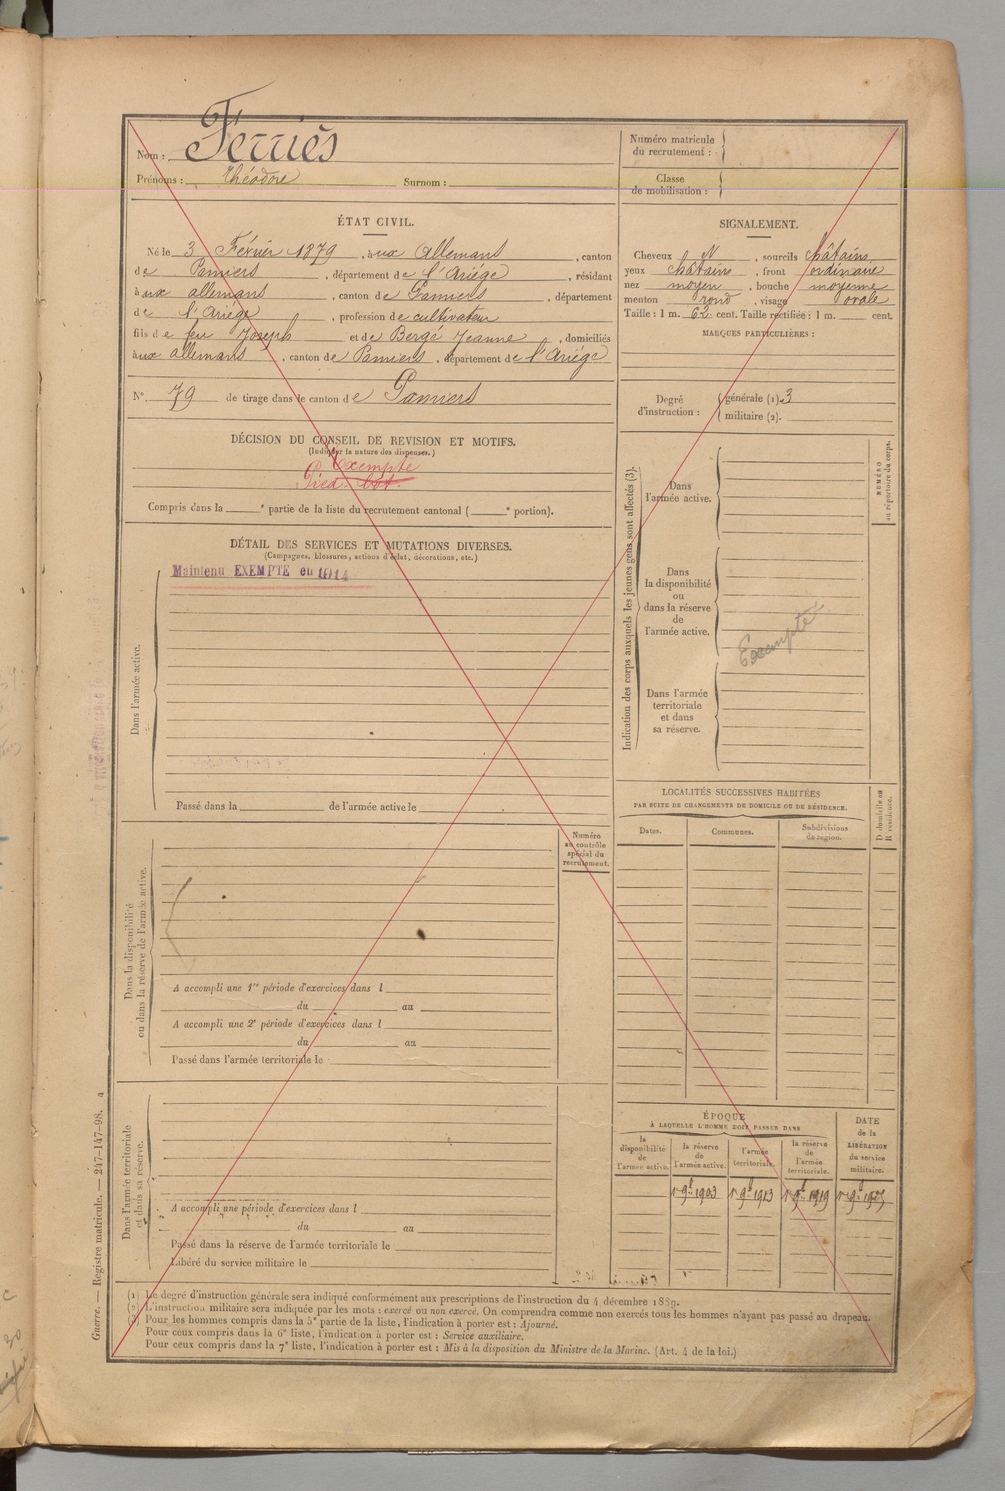 Nom : Ferriès
Prénoms : Théodore Surnom :
Numéro matricule
du recrutement :
Classe
de mobilisation :
ÉTAT CIVIL.
Né le 3 Février 1879, à ux Allemans, canton
de Pamiers, département de l'Ariége, résidant
à ux allemans, canton de Pamiers, département
de l'Ariége, profession de cultivateur
fils de feu Joseph et de Bergé Jeanne, domiciliés
à ux allemans, canton de Pamiers, département de l'Ariége
N° 79 de tirage dans le canton de Pamiers
SIGNALEMENT.
Cheveux N, sourcils châtains,
yeux châtains, front ordinaire
nez moyen, bouche moyenne
menton rond, visage ovale
Taille : 1 m. 62 cent. Taille rectifiée : 1 m. cent.
MARQUES PARTICULIÈRES :
Degré
d'instruction :
générale (1). 3
militaire (2).
DÉCISION DU CONSEIL DE REVISION ET MOTIFS.
(Indiquer la nature des dispenses.)
Exempté
Pied-bot.
Compris dans la e partie de la liste du recrutement cantonal ( e portion).
DÉTAIL DES SERVICES ET MUTATIONS DIVERSES.
(Campagnes, blessures, actions d'éclat, décorations, etc.)
Maintenu EXEMPTÉ en 1914
Dans l'armée active.
Passé dans la de l'armée active le
Indication des corps auxquels les jeunes gens sont affectés (3).
Dans
l'armée active.
Dans
la disponibilité
ou
dans la réserve
de
l'armée active.
Exempté
Dans l'armée
territoriale
et dans
sa réserve.
NUMÉRO
au répertoire du corps.
Numéro
au contrôle
spécial du
recrutement.
Dans la disponibilité
ou dans la réserve de l'armée active.
A accompli une 1re période d'exercices dans l
du au
A accompli une 2e période d'exercices dans l
du au
Passé dans l'armée territoriale le
LOCALITÉS SUCCESSIVES HABITÉES
PAR SUITE DE CHANGEMENTS DE DOMICILE OU DE RÉSIDENCE.
Dates. Communes. Subdivisions
de région.
D domicile ou
R résidence.
Dans l'armée territoriale
et dans sa réserve.
A accompli une période d'exercices dans l
du au
Passé dans la réserve de l'armée territoriale le
Libéré du service militaire le
ÉPOQUE
À LAQUELLE L'HOMME DOIT PASSER DANS
la
disponibilité
de
l'armée active.
la réserve
de
l'armée active.
l'armée
territoriale.
la réserve
de
l'armée
territoriale.
DATE
de la
LIBÉRATION
du service
militaire.
1903 1913 1919
(1) Le degré d'instruction générale sera indiqué conformément aux prescriptions de l'instruction du 4 décembre 1889.
(2) L'instruction militaire sera indiquée par les mots : exercé ou non exercé. On comprendra comme non exercés tous les hommes n'ayant pas passé au drapeau.
(3) Pour les hommes compris dans la 5e partie de la liste, l'indication à porter est : Ajourné.
Pour ceux compris dans la 6e liste, l'indication à porter est : Service auxiliaire.
Pour ceux compris dans la 7e liste, l'indication à porter est : Mis à la disposition du Ministre de la Marine. (Art. 4 de la loi.)
Guerre. — Registre matricule. — 247-147-98. 4